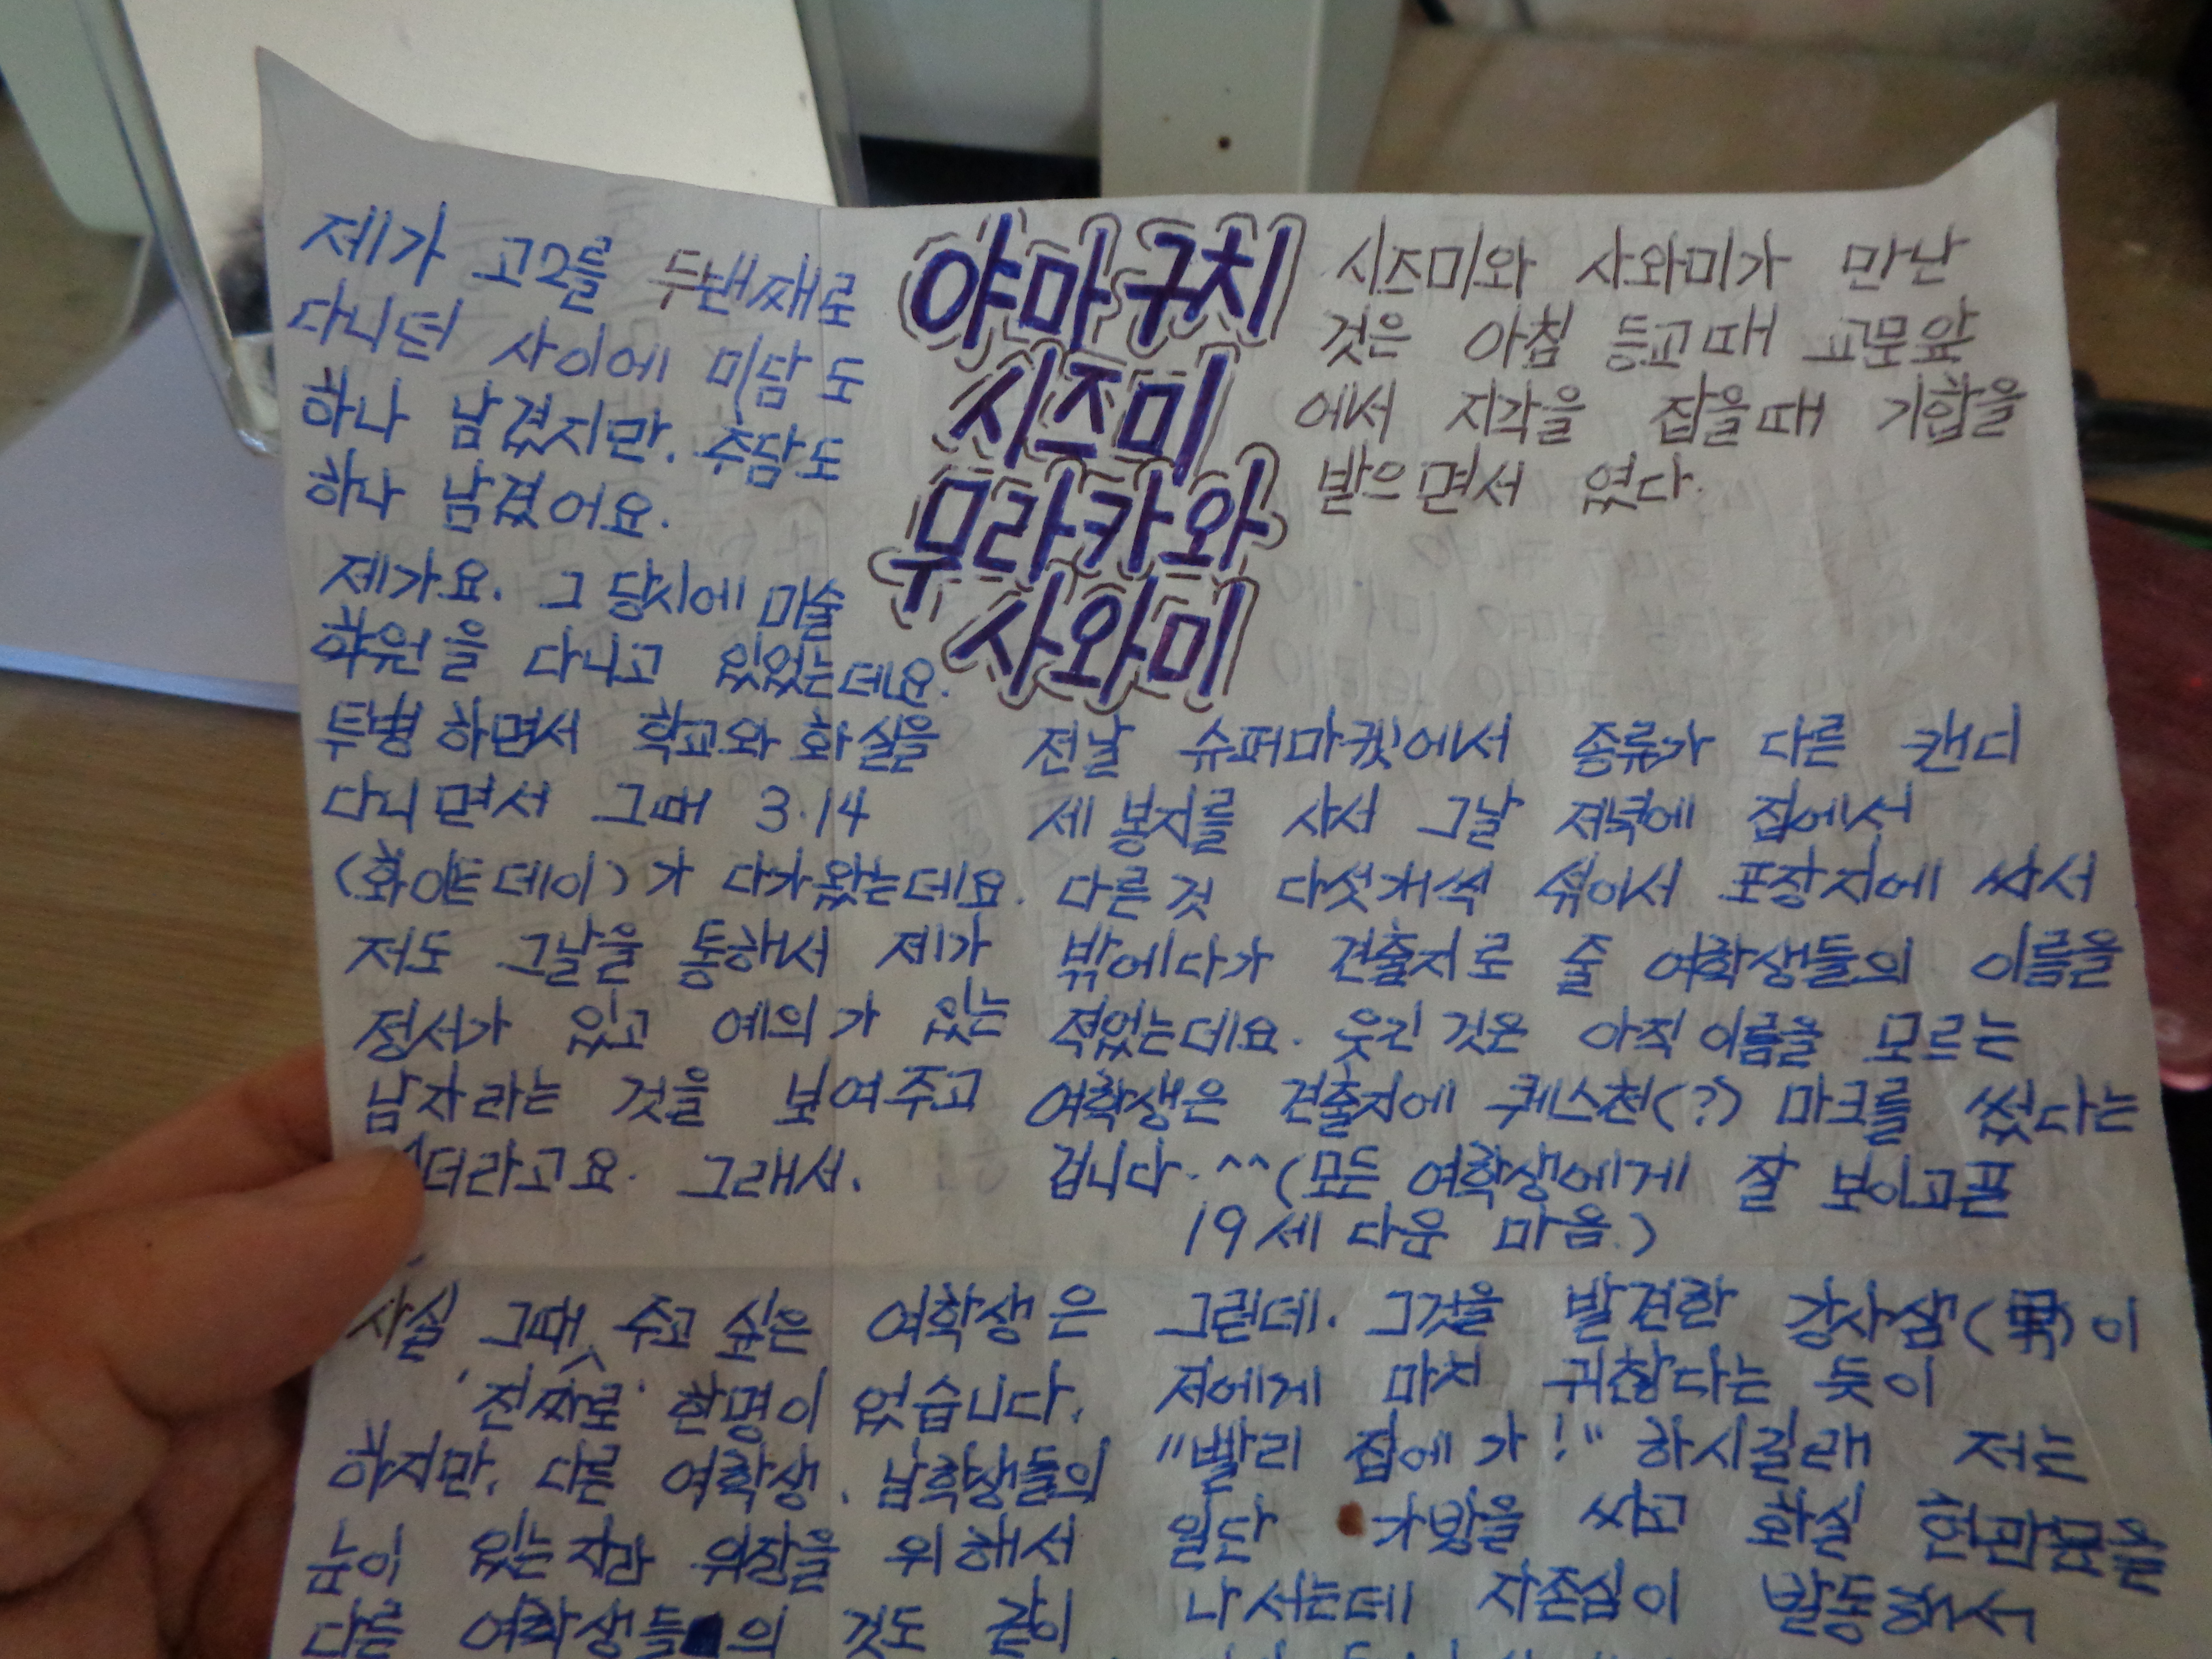 제가 고2를 두낸째로
다니던 사이에 미담도
하나 남겼지만, 추담도
하나 남겼어요.
제가요. 그 당시에 미술
학원을 다니고 있었는데요.
투병하면서 학교와 화실을
다니면서 그때 3.14
(화이트데이)가 다가왔는데요.
저도 그날을 통해서 제가
정서가 있고 예의가 있는
남자라는 것을 보여주고
더라고요. 그래서.
사실 그때 주고 싶은 여학생은
'진짜로' 한명이 없습니다.
하지만, 다른 여학생, 남학생들의
눈이 있는지라 위장을 위해서
다른 여학생들의 것도 같이
야마구치
시즈미
무라카와
사와미
시즈미와 사와미가 만난
것은 아침 등교때 교문앞
에서 지각을 잡을때 기합을
받으면서 였다.
전날 슈퍼마켓에서 종류가 다른 캔디
세 봉지를 사서 그날 저녁에 집에서
다른것 다섯개씩 섞어서 포장지에 싸서
밖에다가 견출지로 줄 여학생들의 이름을
적었는데요. 웃긴것은 아직 이름을 모르는
여학생은 견출지에 퀘스천(?) 마크를 썼다는
겁니다. ^^(모든 여학생에게 잘 보이고픈
19세 다운 마음.)
그런데. 그것을 발견한 강사샘(男)이
저에게 마치 귀찮다는 듯이
"빨리 집에가!" 하시길래 저는
일단 가방을 싸고 화실 현관문을
나서는데 자존심이 발동해서